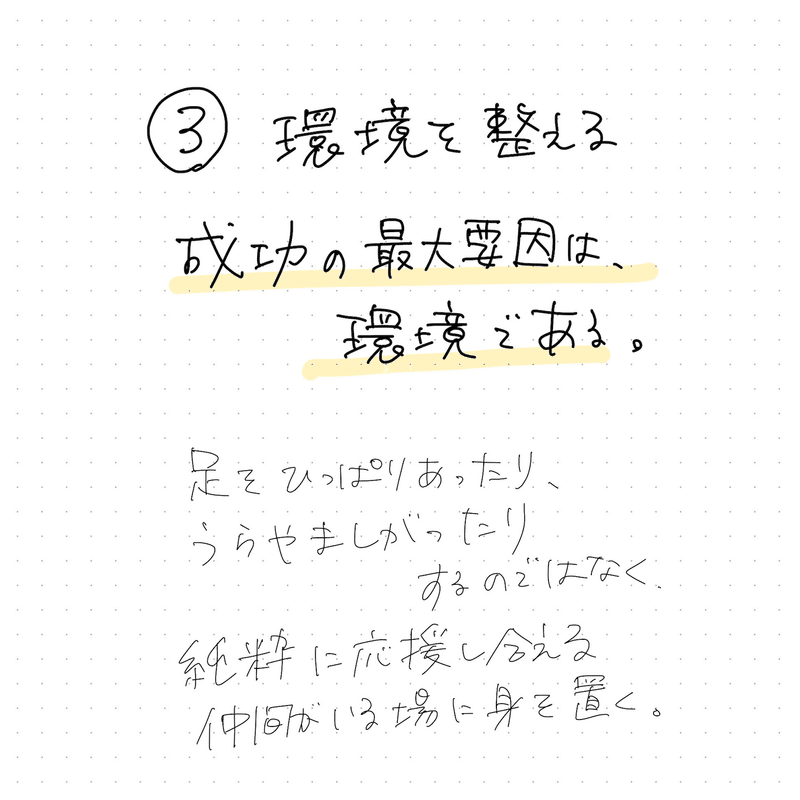 ③ 環境を整える
成功の最大要因は、
環境である。
足をひっぱりあったり、
うらやましがったり
するのではなく、
純粋に応援し合える
仲間がいる場に身を置く。